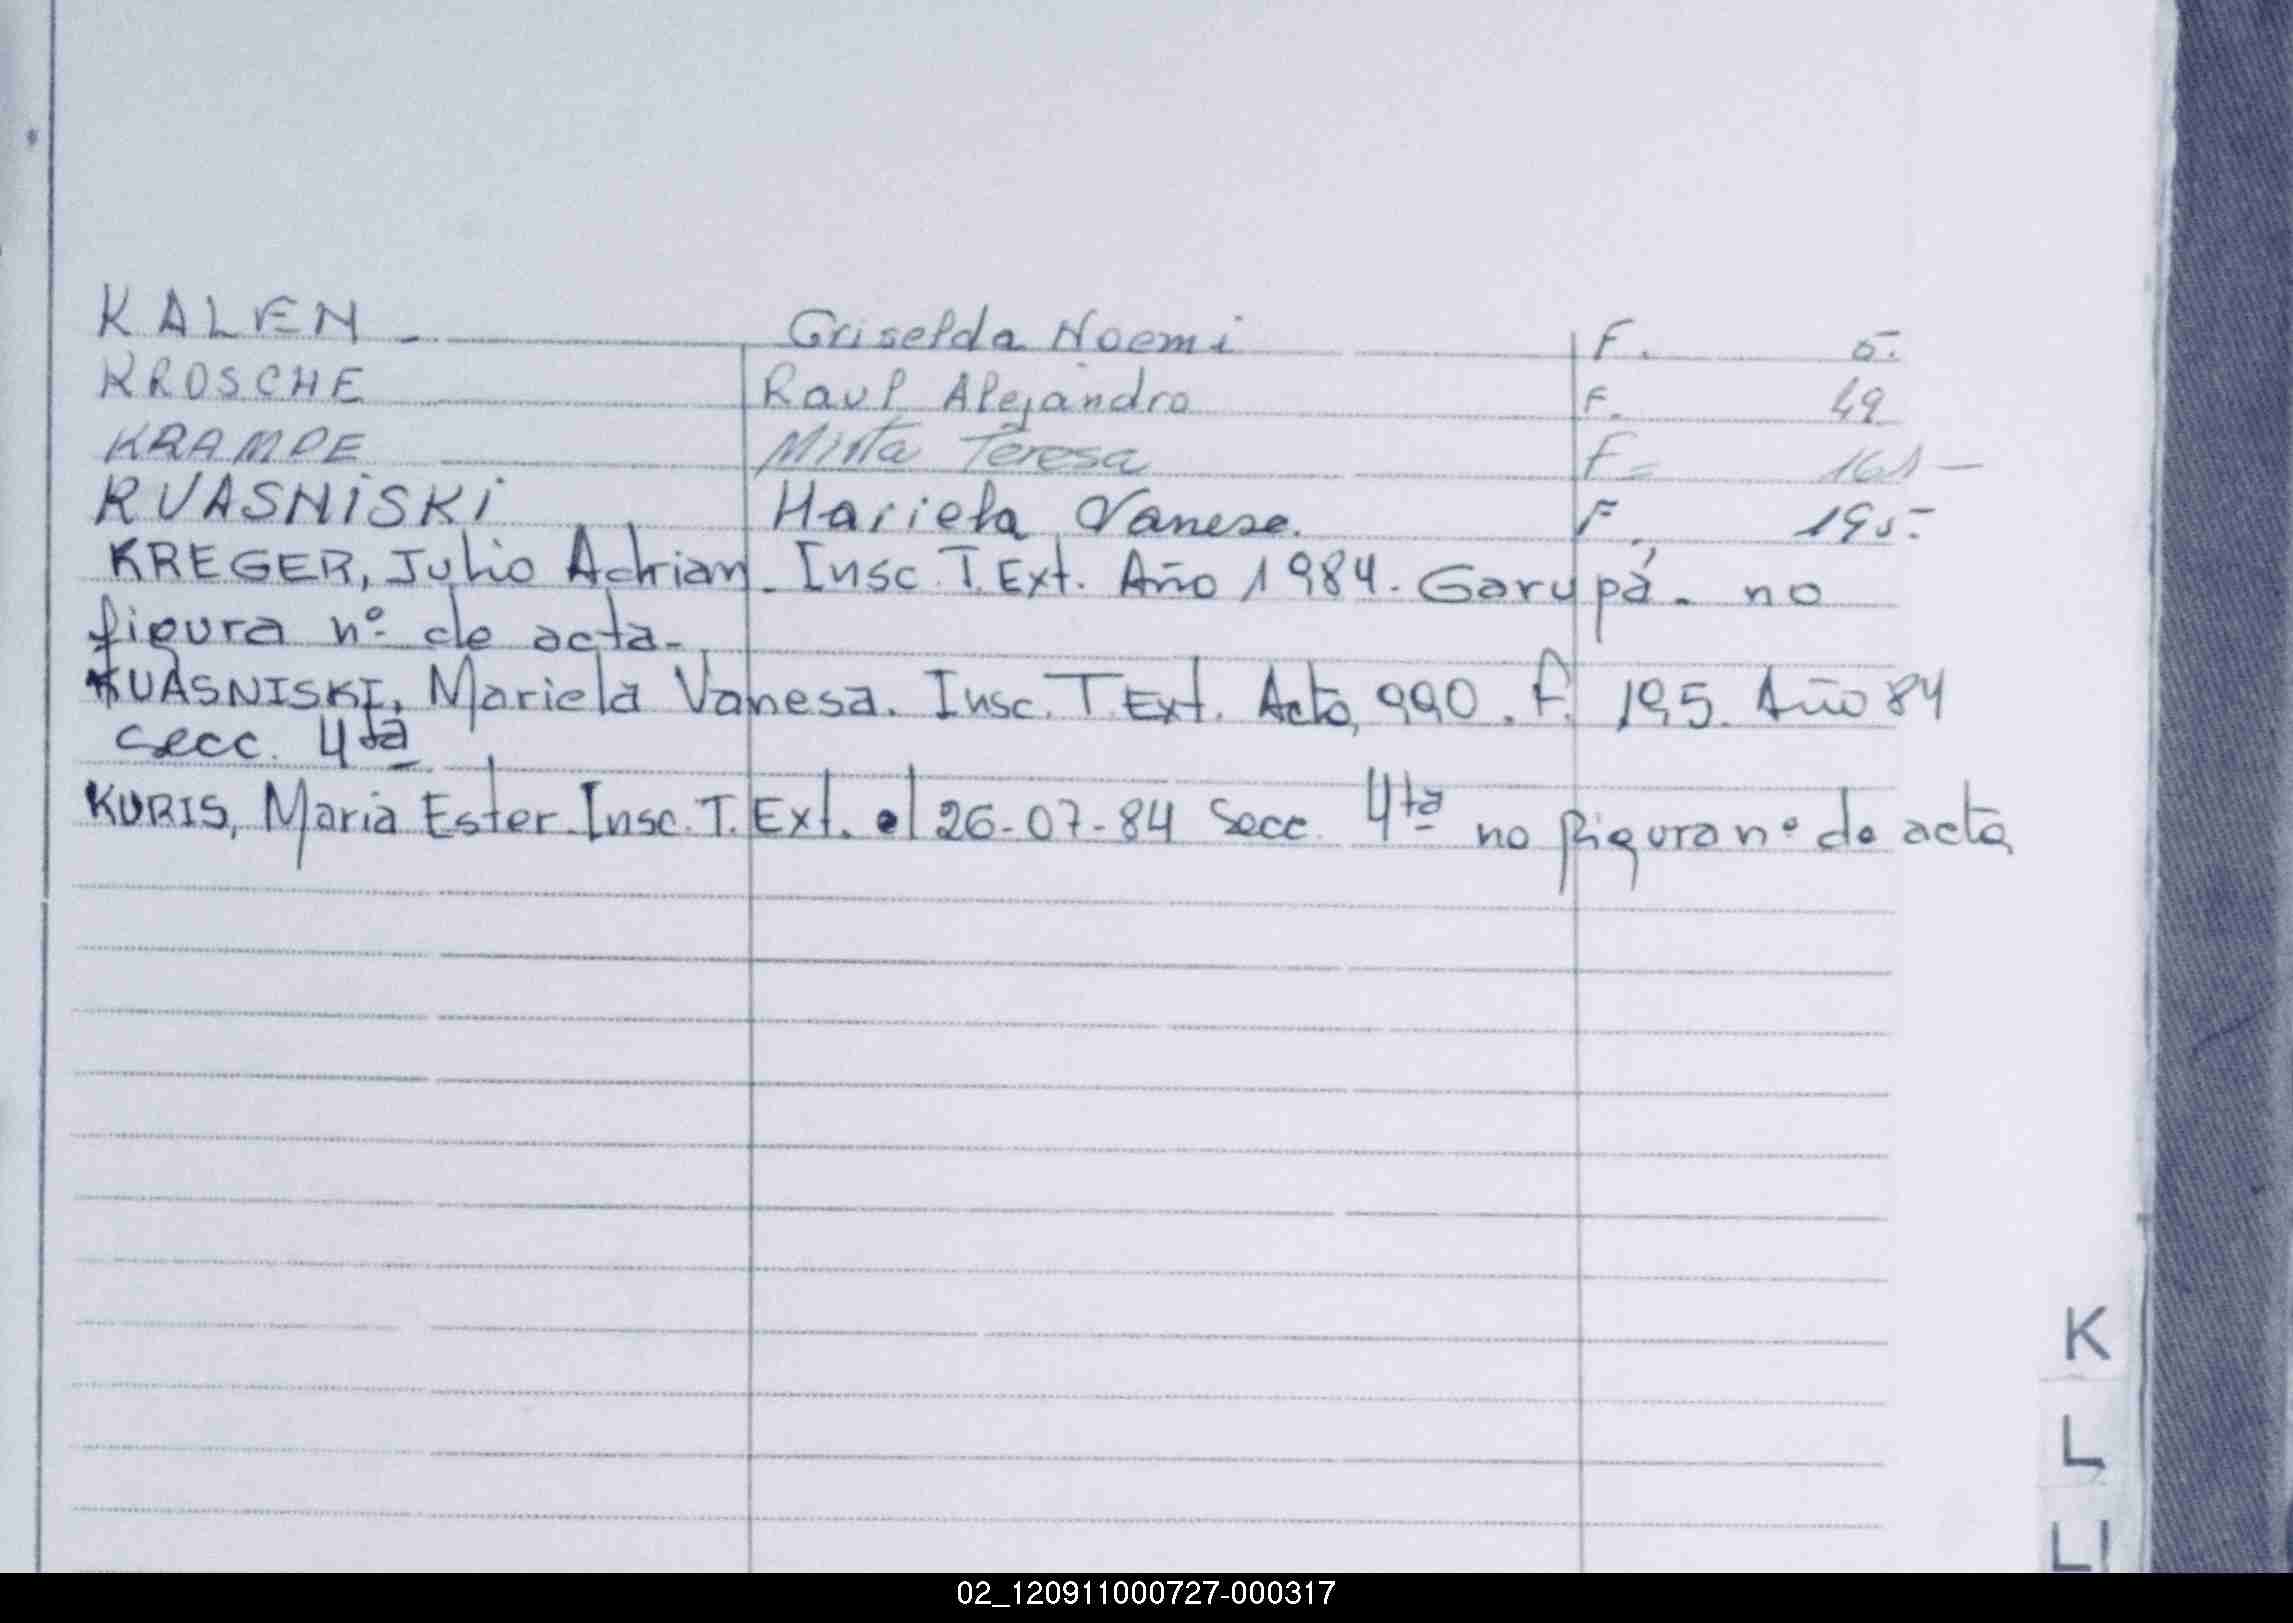 KALEN - Griselda Noemi F. 5.
KROSCHE Raul Alejandro F. 49
KRAMPE Mirta Teresa F= 161 -
KUASNiSKi Mariela Vanesa. F. 195-
KREGER, Julio Adrian - Insc. T. Ext. Año 1984. Garupá - no
figura nº de acta -
KUASNISKI, Mariela Vanesa. Insc. T. Ext. Acta, 990. F. 195. Año 84
secc. 4ta
KURIS, Maria Ester Insc. T. Ext. el 26-07-84 Secc. 4ta no figura nº de acta
K
L
LL
02_120911000727-000317